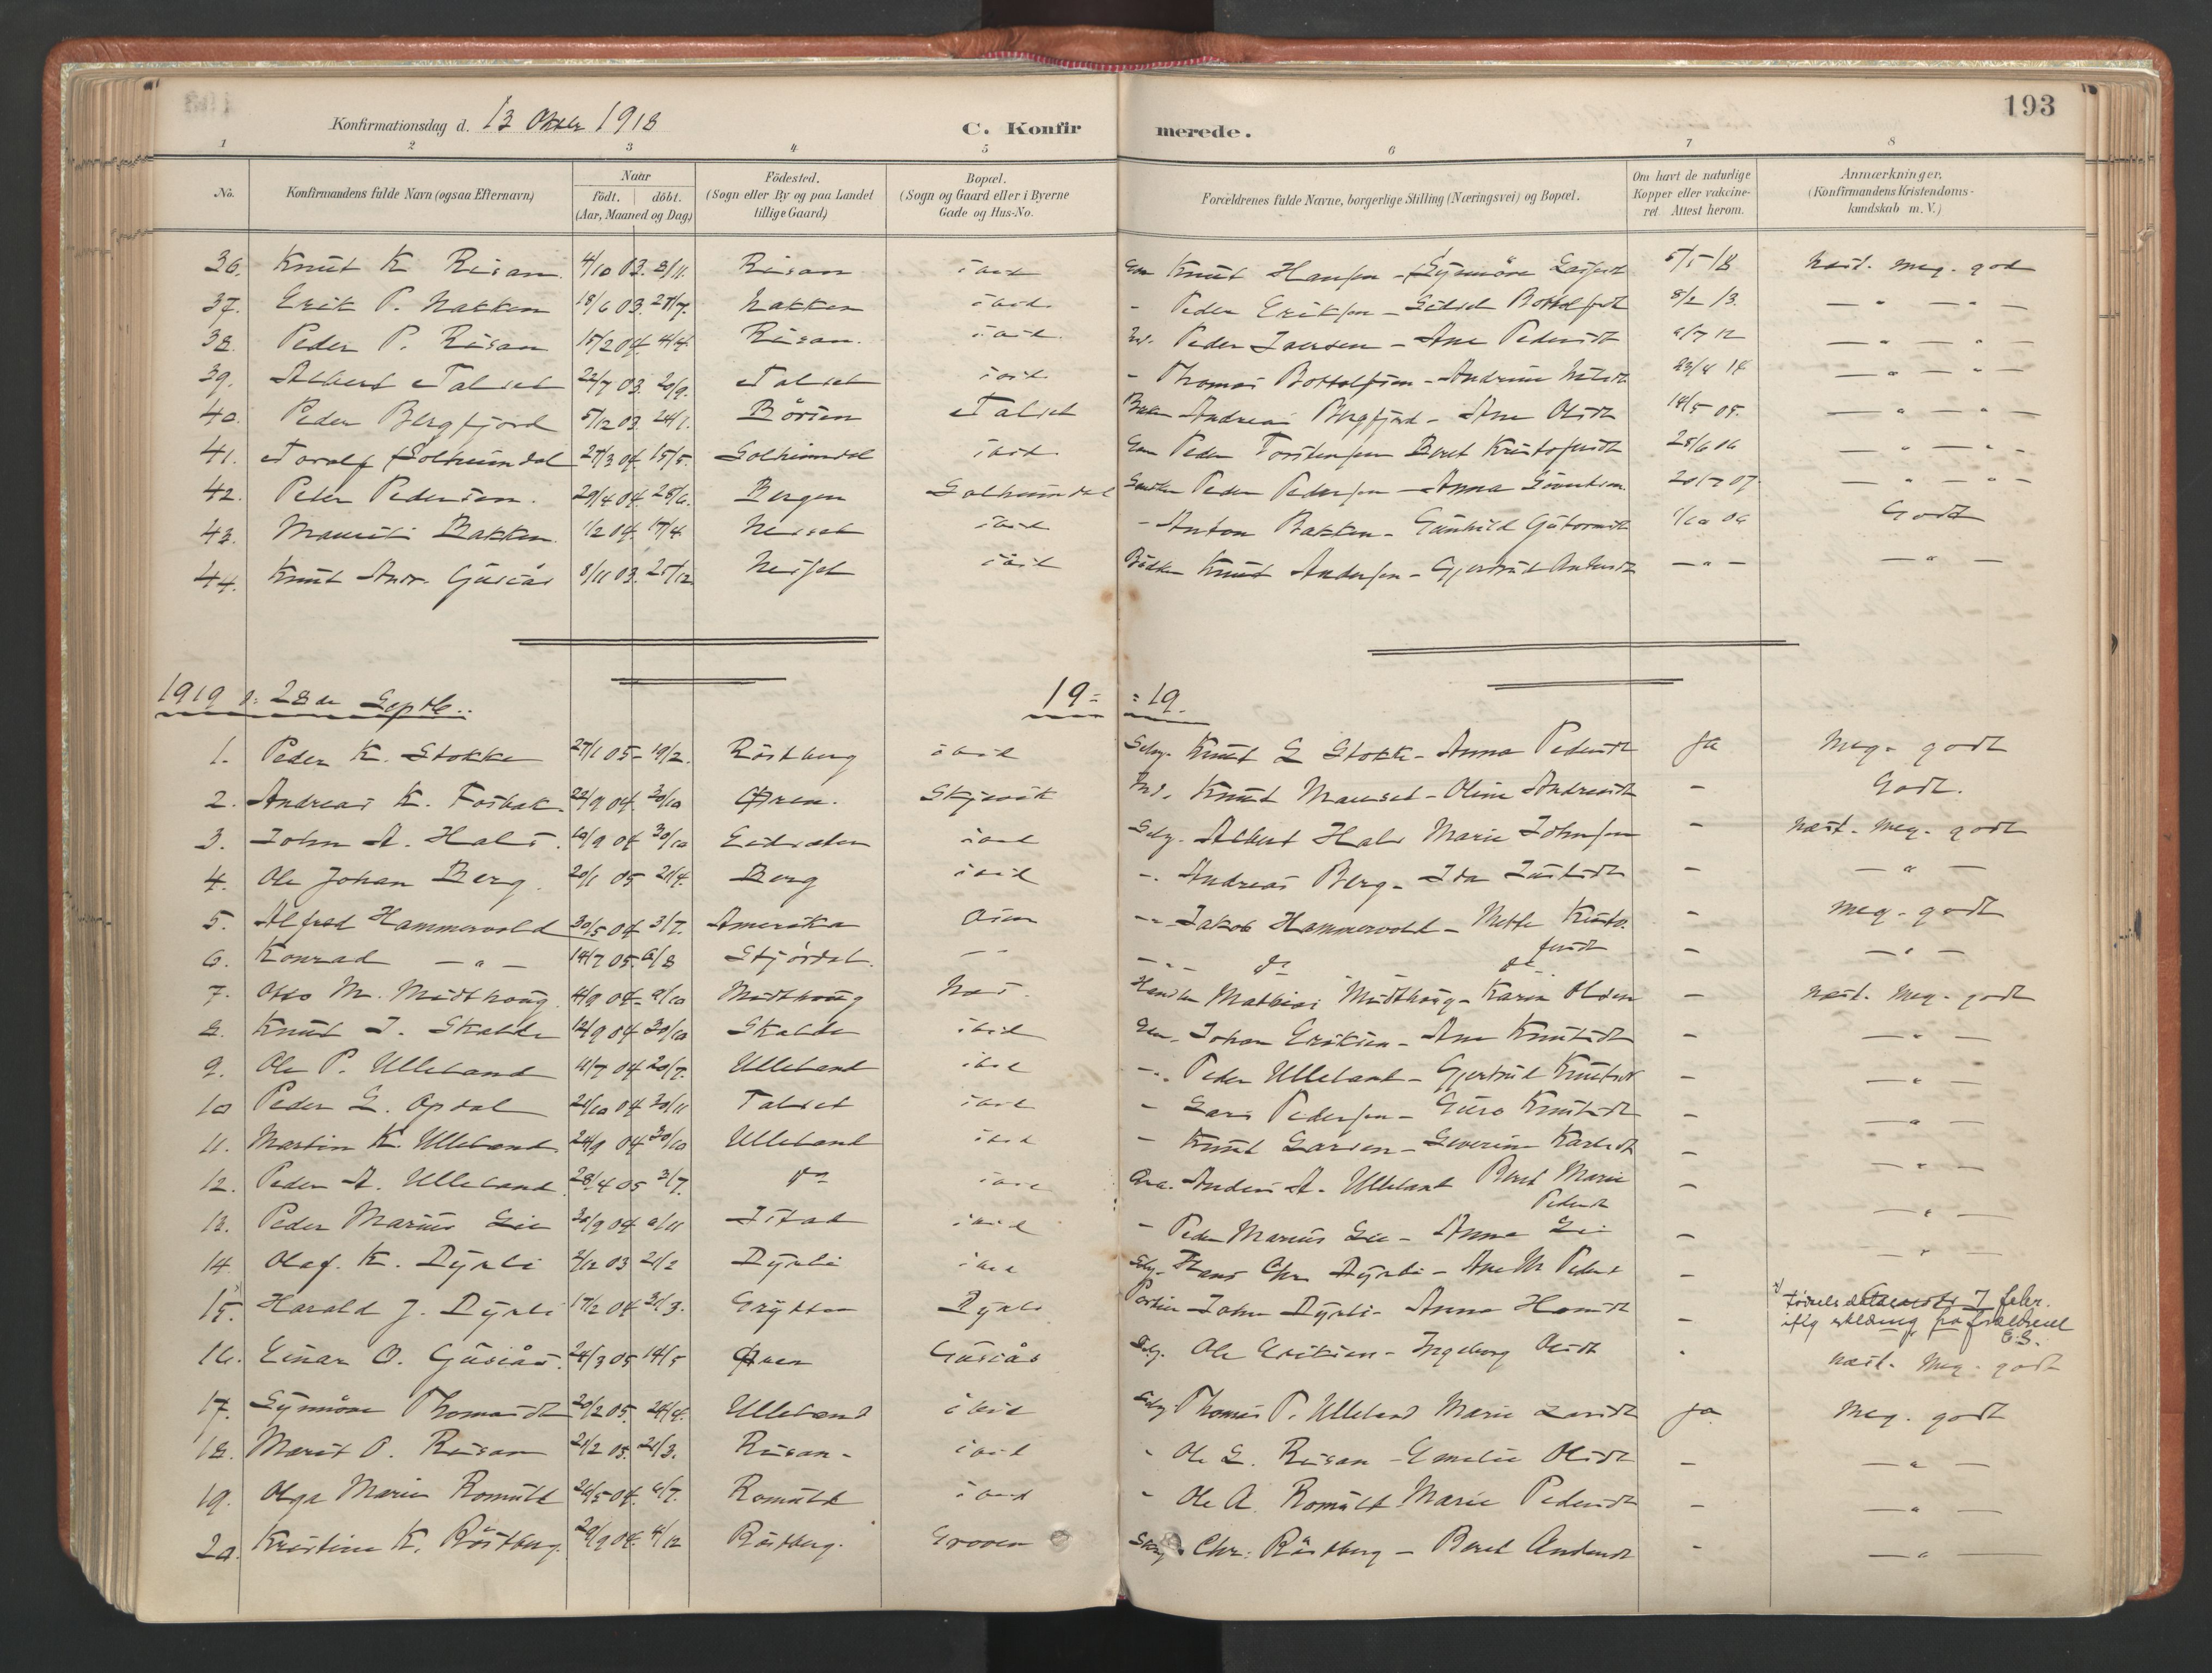 193
Konfirmationsdag d. 13 Oktbr 1918
C. Konfirmerede.
1 2 3 4 5 6 7 8
No.
Konfirmandens fulde Navn (ogsaa Efternavn)
Naar
født. døbt.
(Aar, Maaned og Dag)
Fødested.
(Sogn eller By og paa Landet
tillige Gaard)
Bopæl.
(Sogn og Gaard eller i Byerne
Gade og Hus-No.
Forældrenes fulde Navne, borgerlige Stilling (Næringsvei) og Bopæl.
Om havt de naturlige
Kopper eller vakcine-
ret Attest herom.
Anmærkninger.
(Konfirmandens Kristendoms-
kundskab m. V.)
36. Knut K Risan 4/10 03. 8/11. Risan ibid Knut Hansen - Synnöve 5/5 18 næst. meg. god
37. Erik P. Nakken 18/6 03. Nakken ibid. - Peder Eriksen - 8/2 13. — " — " —
38. Peder P. Risan 15/2 04. 4/4. Risan. ibid. Peder Iversen - Ane Pedersdt 12 — " — " —
39. Albert Talset 22/7 03. 20/9. Talset ibid. - Thomas Bottolfsen - Andrine 23/4 14 — " — " —
40. Peder Bergfjord 5/12 03. 24/1. Börsen Talset Andreas Bergfjord - Ane Olsdt 14/5 05. — " — " —
41. Toralf Solheimdal 27/3 04. 15/5. Solheimdal ibid. Peder Torstensen Beret Kristofersdt 25/6 06 — " — " —
42. Peter Pedersen. 29/4 04. 28/6. Bergen Solheimdal Peder Pedersen - Anna 20/7 07. — " — " —
43. Maurits Bakken. 1/2 04. 17/4 Neiset ibid - Anton Bakken - Gunhild Gutormsdt Godt
44. Knut Andr. Gusiås 8/11 03. 25/12 Neiset ibid Bödker Knut Andersen - Gjertrud Andersdt — " — — " —
1919 d: 28de Septb.. 19= =19.
1. Peder K. Stokke 27/1 05 - 19/2. Röstberg ibid Selvg. Knut L Stokke - Anna Pedersdt ja Meg. godt
2. Andreas K. Fosbak. 22/9 04. 30/10 Øren. Skjevik Knut Mauset - Oline Andreasdt — Godt.
3. John A. Hals. 19/9 04 30/10 Eidsæter ibid Selvg. Albert Hals Marie Johnsen — næst. meg. godt
4. Ole Johan Berg. 20/1 05 21/4. Berg ibid —. Andreas Berg - Ida — — " —
5. Alfred Hammervold 30/5 04. 3/7. Amerika —"— Jakob Hammervold - Mette Kristo- — meg. godt
fersdt
6. Konrad — " — 14/7 05. 6/8 Stjördal. — — — " — do do — — " —
7. Otto M. Midthaug 4/9 04 - 9/10 Midthaug Næs. Mathias Midthaug - Karen Olsen — næst. meg. godt
8. Knut J. Skalde 12/9 04 30/10 Skalde ibid Johan Eriksen - Ane Knutsdt — — " —
9. Ole P. Ulleland 4/7 04 20/7. Ulleland ibid —.. Peder Ulleland - Gjertrud Knutsdt — — " —
10 Peder L. Opdal 21/10 04 20/11 Talset ibid - Lars Pedersen - Guro Knutsdt — — " —
11. Martin K. Ulleland. 24/9 04 30/10 Ulleland ibid - Knut Larsen - Severine Karlsdt — — " —
12. Peder A. Ulleland. 28/4 05 3/7. do ibid Anders A. Ulleland Beret Marie — — " —
Pedersdt
13. Peder Marius Lie 30/9 04 6/11 Istad ibid - Peder Marius Lie - Anna Lie — — " —
14. Olaf. K. Dyrli 2/12 03 21/2 Dyrli ibid Selvg. Hans Chr Dyrli - Ane M. Pedersd — — " —
15. Harald J. Dyrli 17/2 04 31/3. Grytten Dyrli John Dyrli - Anna Hansdt — x) födselsdata 7 febr.
iflg melding fra folkereg
E.S.
16. Einar O. Gusiås. 24/3 05 14/5 Øren Gusiås Selvg. Ole Eriksen - Ingeborg Olsdt - næst. meg. godt
17. Synnöve Thomasdt 20/2 05. 24/4. Ulleland ibid Selvg Thomas P. Ulleland Marie Larsdt ja Meg. godt
18. Marit O. Risan 21/2 05. 21/3. Risan - ibid - Ole L. Risan - Emelie Olsdt — — " —
19. Olga Marie Romuld 26/5 04. Romuld ibid - Ole A. Romuld Marie Pedersdt — — " —
20. Kristine K. Röstberg. 29/9 04. 4/12 Röstberg. Grooen Chr: Röstberg — Beret Andersdt - — " —